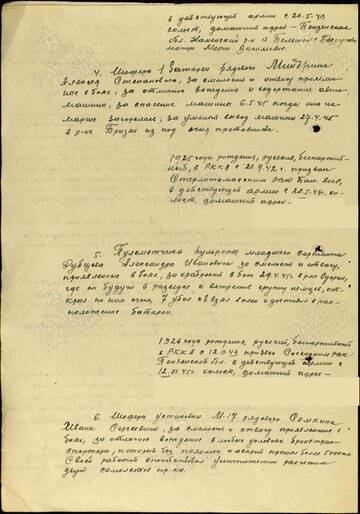 в действующей армии с 20.5.43
холост, домашний адрес - Пензенская
обл. Каменский р-н
мать Мария
4. Шофера 1 батареи рядового Митрина
Алексея Степановича, за смелость и отвагу проявлен-
ные в бою, за отличное вождение и содержание авто-
машины, за спасение машины 6.5.45 когда она на
марше загорелась, за умелый вывод машины 27.4.45
в р-не Бризен из под огня противника.
1925 года рождения, русский, беспартий-
ный, в РККА с 21.9.42 г. призван
Стерлитамакским РВК Баш. АССР,
в действующей армии с 20.5.43г. хо-
лост, домашний адрес -
5. Пулеметчика пульроты младшего сержанта
Рубцова Александра Ивановича за смелость и отвагу,
проявленные в бою, за храбрость в бою 29.4.45г. в р-не
где он будучи в разведке и встретив группу немцев, от-
крыл по ним огонь, 7 убил и взял в плен и доставил в рас-
положение батареи.
1926 года рождения, русский, беспартийный
в РККА с 12.11.43 призван РВК
Пензенской обл. в действующей армии с
12.01.45г. холост, домашний адрес -
6. Шофера установки М-17 рядового Сомкина
Ивана Сергеевича, за смелость и отвагу проявленные в
бою, за отличное вождение в любых условиях бронетран-
спортера, который без поломок и аварий прошел более 5000 км.
Своей работой способствовал уничтожению расчетом
двух самолетов пр-ка.